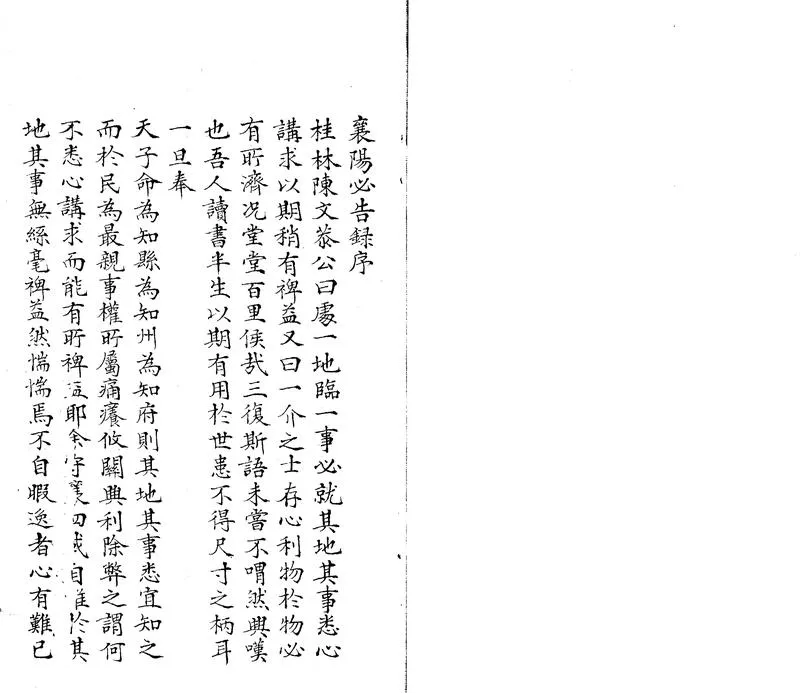 襄陽必告録序
桂林陳文恭公曰處一地臨一事必就其地其事悉心
講求以期稍有裨益又曰一介之士存心利物於物必
有所濟况堂堂百里侯哉三復斯語未嘗不喟然興嘆
也吾人讀書半生以期有用於世患不得尺寸之柄耳
一旦奉
天子命為知縣為知州為知府則其地其事悉宜知之
而於民為最親事權所屬痛癢攸關興利除弊之謂何
不悉心講求而能有所裨益耶余守襄四載自惟於其
地其事無絲毫裨益然惴惴焉不自暇逸者心有難已